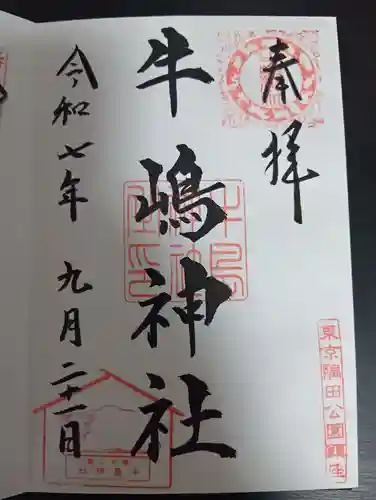 奉拝
牛嶋神社
令和七年 九月二十一日
東京隅田公園鎮座